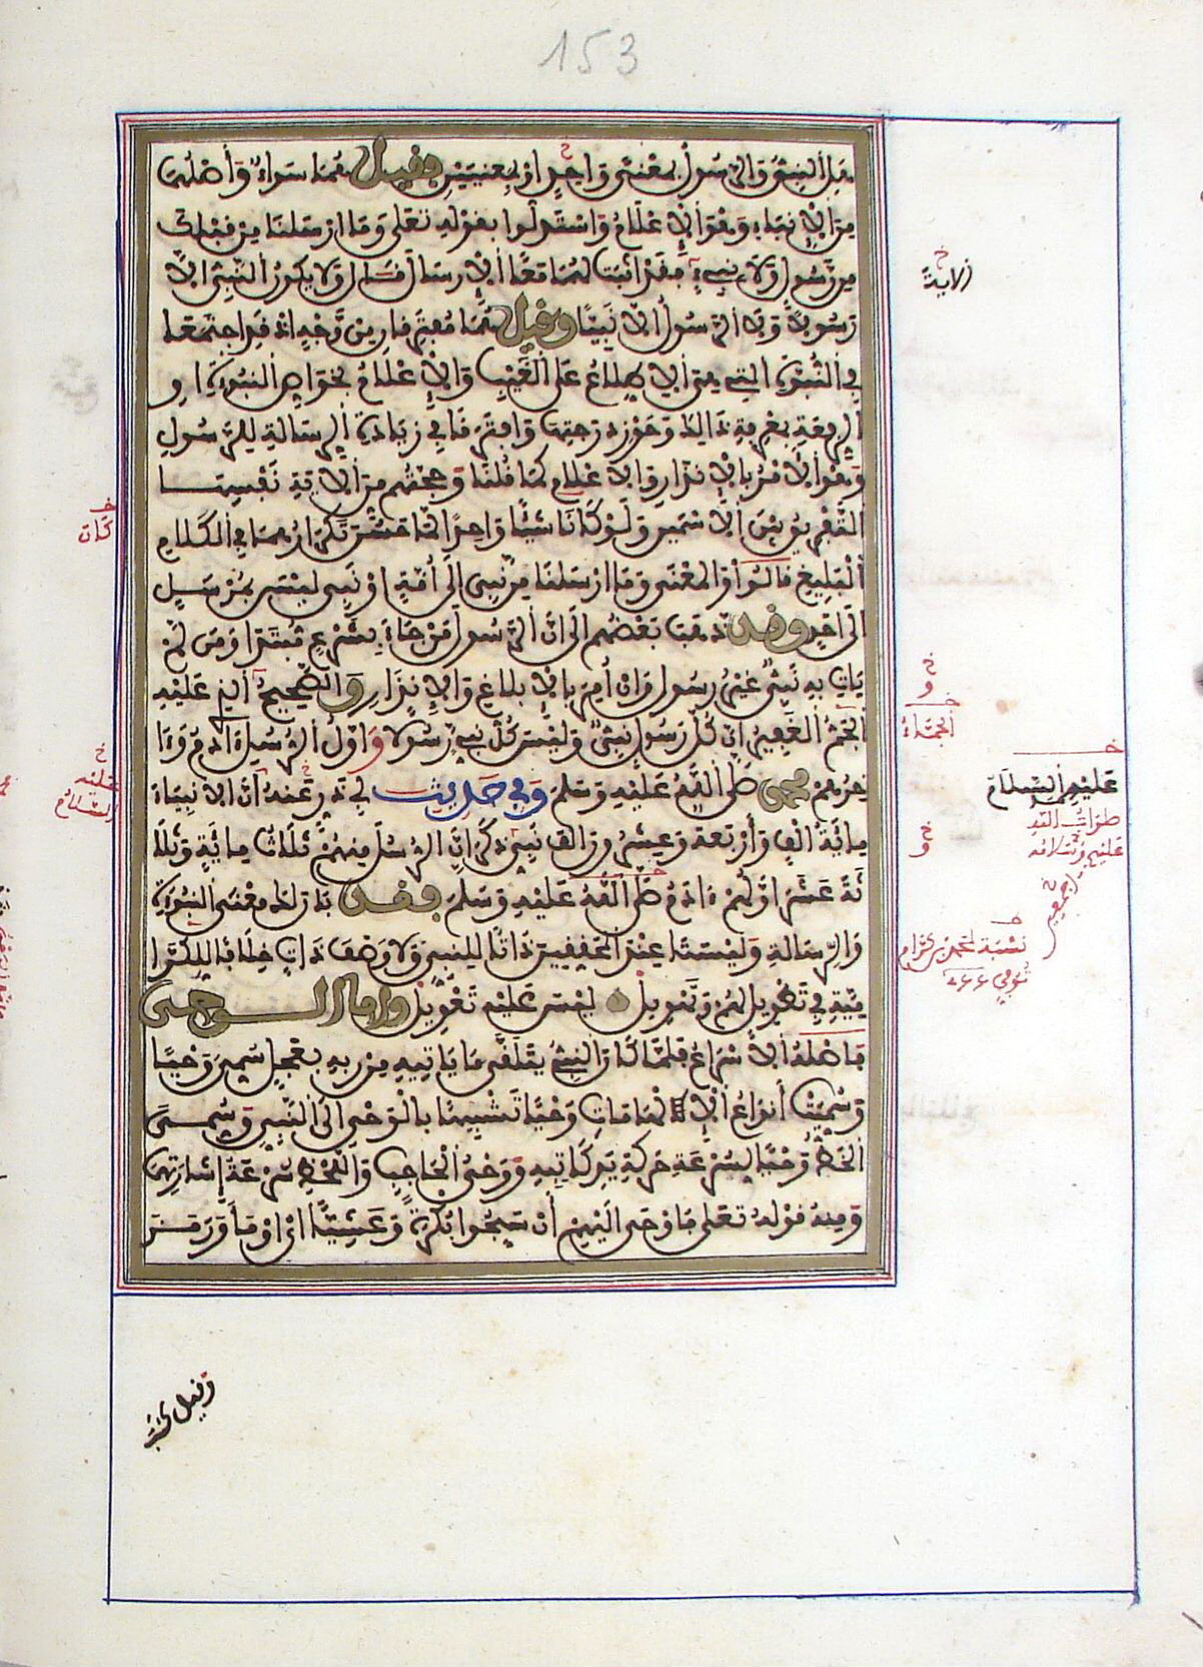 153
هل النبي والرسول بمعنى واحد او بمعنيين وقيل هما سواء وأصلهما
من الإنباء وهو الإعلام واستدلوا بقوله تعلى وما ارسلنا من قبلك
من رسول ولا نبيء فقد اثبت لهما معًا الإرسال قال ولا يكون النبي الا
رسولا ولا الرسول الا نبيا وقيل هما مفترقان من وجه اذ قد اجتمعا
في النبوة التي هي الاطلاع على الغيب والإعلام بخواص النبوة او
الرفعة بمعرفة ذالك وحوز درجتها وافترقا في زيادة الرسالة للرسول
وهو الأمر بالإنذار والاعلام كما قلنا وحجتهم من الاية نفسها
التفريق بين الاسمين ولو كانا شيئًا واحدًا لما حسن تكرارهما في الكلام
البليغ قالوا والمعنى وما ارسلنا من نبي الى أمة او نبي ليس بمرسل
الى احد وقد ذهب بعضهم الى ان الرسول من جاء بشرع مبتدا ومن لم
يات به نبي غير رسول وان أمر بالابلاغ والانذار والصحيح الذي عليه
الجم الغفير ان كل رسول نبي وليس كل نبي رسولا واول الرسل ءادم وءا
خرهم محمد صلى الله عليه وسلم وفي حديث ابي ذر عنه ان الانبياء
مائة الف وأربعة وعشرون الف نبي وذكر ان الرسل منهم ثلاث مائة وثلا
ثة عشر اولهم ءادم صلى الله عليه وسلم فقد بان لك معنى النبوة
والرسالة وليستا عند المحققين ذاتا للنبي ولا وصف ذات خلافا للكرا
مية في تطويل لهم وتهويل ليس عليه تعويل واما الوحي
فاصله الإسراع فلما كان النبي يتلقى ما ياتيه من ربه بعجل سمي وحيًا
وسميت أنواع الإلهامات وحيًا تشبيهًا بالوحي الى النبي وسمي
الخط وحيًا لسرعة حركة يد كاتبه ووحي الحاجب واللحظ سرعة إشارتهما
ومنه قوله تعلى فاوحى اليهم أن سبحوا بكرة وعشيًا اي اومأ ورمز
خ
لاية
خ
كان
خ
و
خ
الجماء
خ
عليه
السلام
خ
عليهم السلام
صلوات الله
عليهم وسلامه
اجمعين
خ
و
نسبة لمحمد بن كرام
توفي
وقيل كتب